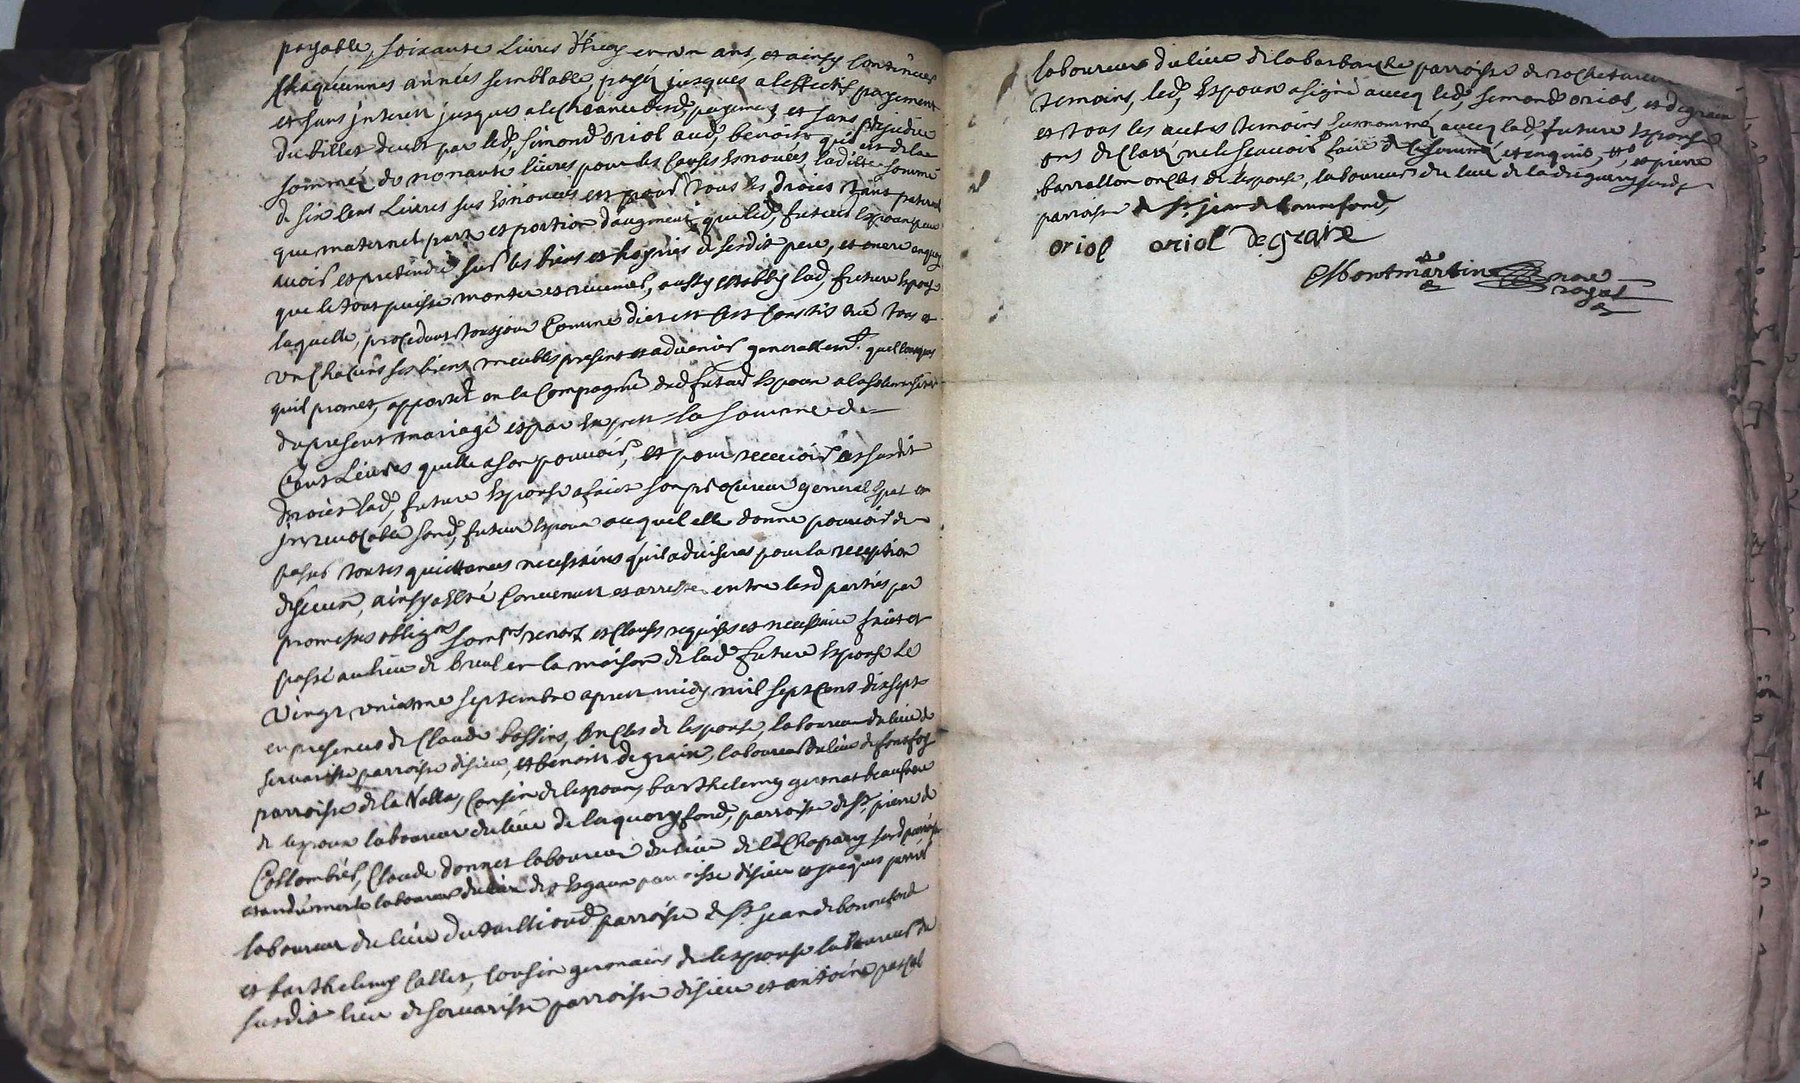 payable, soixante Livres d'huy en un an, et ainsy continuer
chaquennes années semblable payer jusques a leffectif payement
et sans jnterest jusques a lecheance desd payemens et sans prejudice
du billet deub par led, simond oriol aud, benoist qui est de la
somme de nonante livres pour les causes enoncées laditte somme
de six cens Livres sus enoncées est pour tous les droits tant paternel
que maternel part et portion daugment que led, futeur Espoux peut
avoir et pretendre sur les biens et hoyries de sesdit pere, et mere a quoy
que le tout puisse monter et revenir, aussy establÿ lad, future Espouse
laquelle, procedant tousjour comme dict est sest constitué tous et
un chacuns ses biens meubles presens et advenir generallemt. quelconques
quil promet, apporter en la Compagnie dud futur Espoux a la solemnisation
du present mariage et par exprest la somme de
Cent Livres quelle a son pouvoir, et pour recevoir les susdit
droict lad, future Espouse a faict son procureur general spal et
jrrevocable sond, futeur Espoux auquel elle donne pouvoir de
passer toutes quittances necessaires quil advisera pour la reception
diceux, ainsy a esté convenu et arresté entre lesd parties par
promesses obligons somons renons et clauses requises et necessaire faict et
passé au lieu de breul en la maison de lad future Espouse Le
vingt uniesme septembre apres midy mil sept cens dix sept
en presences de Claude bossins, oncles de lespouse, laboureur du lieu de
servarisse parroisse disieu, et benoist degraix, laboureur du lieu de fontfoy
parroisse de la Valla, Cousin de lespoux, barthelemy beaufrere
de lespoux laboureur du lieu de parroisse de St, pierre de
Collombier, Claude donnet laboureur du lieu de la Chapany susd parroisse
et andré merle laboureur du lieu des parroisse disieu et jacques
laboureur du lieu du parroisse de St jean de bonnefond
et barthelemy Callet, cousin germains de lespouse laboureur du
susdit lieu de servarisse parroisse disieu et antoine pascal
laboureur du lieu de la barbanche parroisse de rochetaillée
temoins, led, Espoux a signé avecq led, simond oriol, et degraix
et tous les autres temoins surnommé avecq lad, future Espouse
ont declaré ne le scavoir faire de ce sommé et enquis, et pierre
barrallon oncles de lespouse, laboureur du lieu de la susd,
parroisse de St, jean de bonnefond,
oriol oriol degraix
Montmartin nore
royal